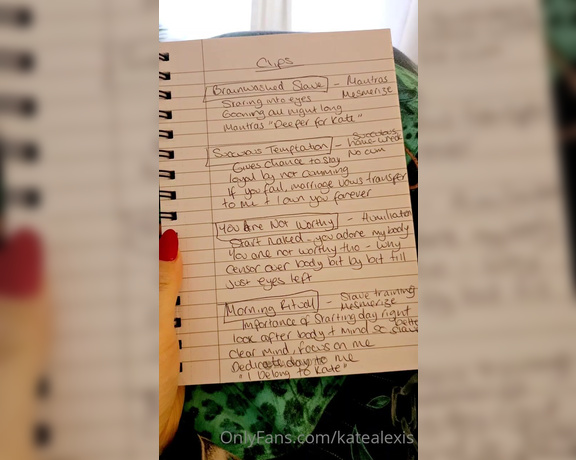 Clips
Brainwashed Slave - Mantras
Staring into eyes Mesmerize
Gooning all night long
Mantras "Deeper for Kate"
Succubus Temptation - Succubus
home-wreck
Gives chance to stay No cum
loyal by not cumming
If you fail, marriage vows transfer
to me + I own you forever
You Are Not Worthy - Humiliation
Start naked - you adore my body
You are not worthy tho - why
Censor over body bit by bit till
just eyes left
Morning Ritual - Slave training
Mesmerize
Importance of starting day right
look after body + mind so better slave
clear mind, focus on me
Dedicate day to me
"I Belong to Kate"
OnlyFans.com/katealexis